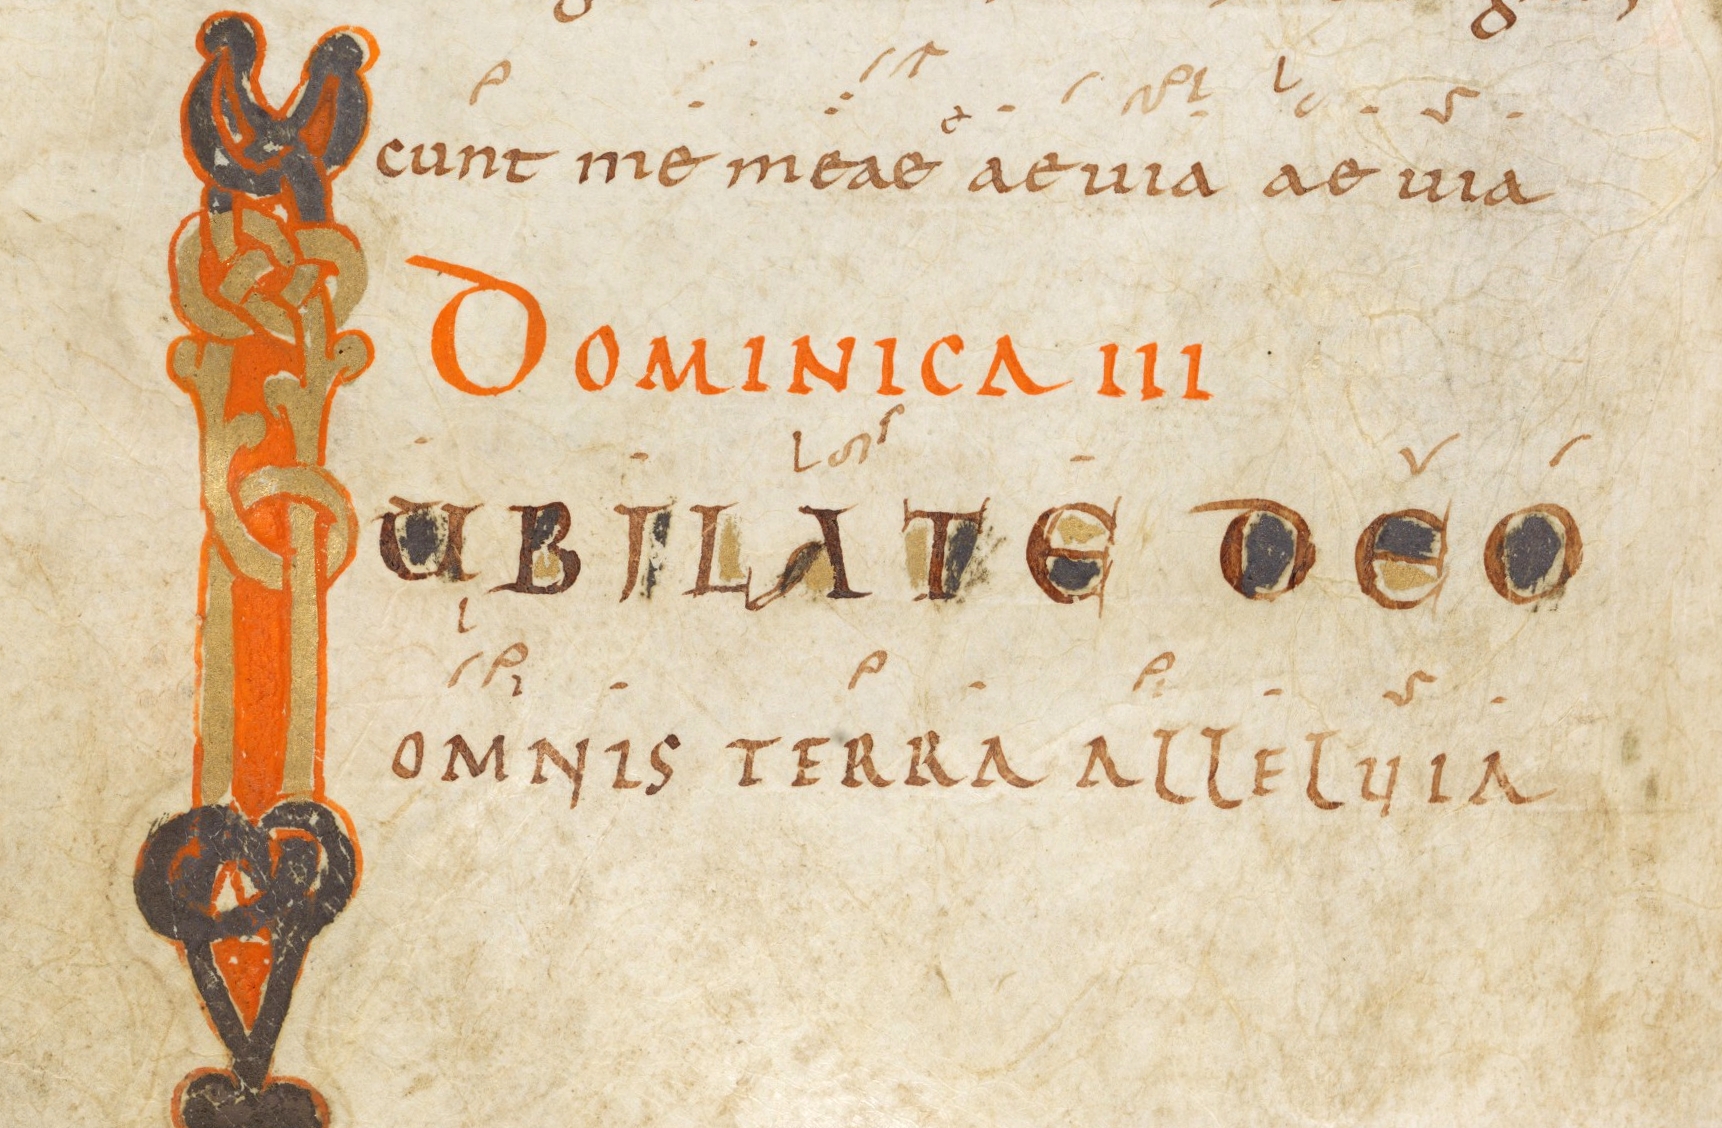 cunt me meae aeuia aeuia
DOMINICA III
IUBILATE DEO
OMNIS TERRA ALLELUIA